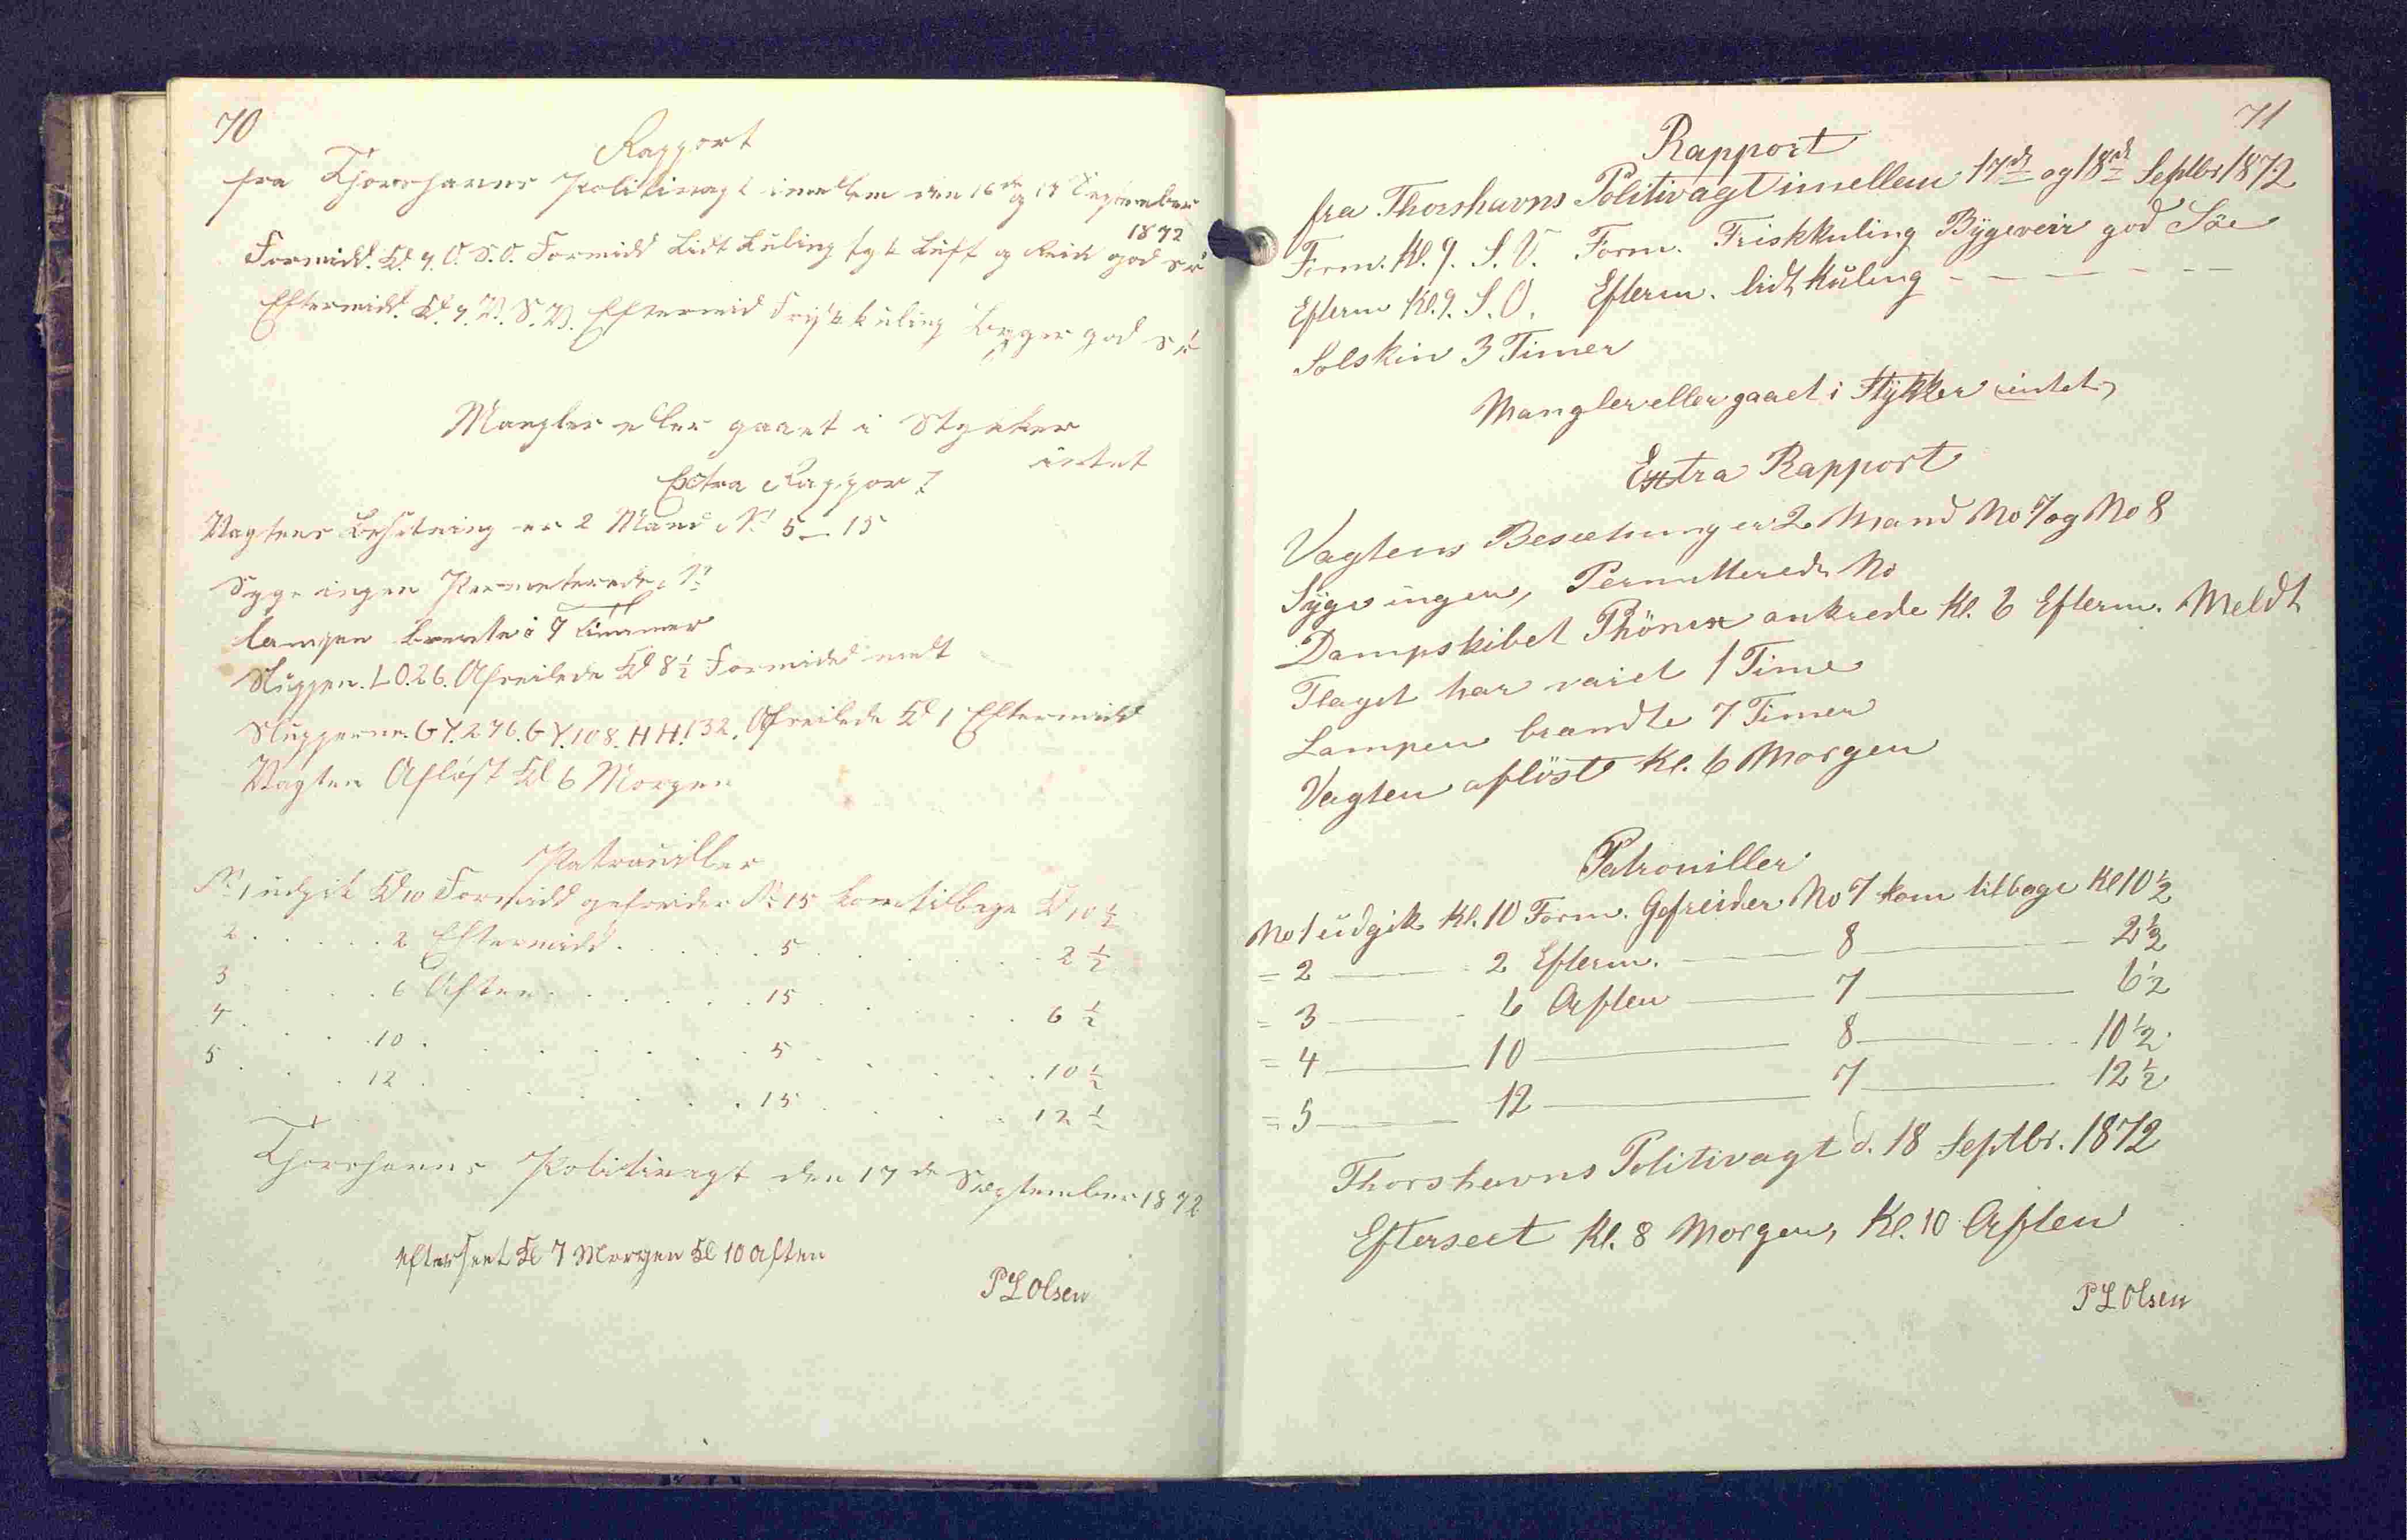 70
Rapport
fra Thorshavns Politivagt imellem den 16de og 17 September
1872
Formidd. Kl. 9. O. S. O. Formidd Lidt Kuling tyk Luft og Rein god Sø
Eftermidd. Kl. 9. V. S. V. Eftermid Friskkuling Byger god Sø
Mangler eller gaaet i Stykker
intet
Extra Rapport
Vagtens Besetning er 2 Mand No 5 — 15
Syge ingen Permeterede No
Lampen brente i 7 Timmer
Sluppen. LO.26. Afreilede Kl 8½ Formidd meldt
Slupperne. GY.276. GY.108. HH.132. Afreilede Kl 1 Eftermidd
Vagten Afløst Kl 6 Morgen
Patrouiller
No 1 udgik Kl 10 Formidd gefreider No 15 kom tilbage Kl 10 ½
2 . . . . . 2 Eftermidd . . . . 5 . . . . . . 2 ½
3 . . . . . 6 Aften . . . . . 15 . . . . . 6 ½
4 . . . . 10 . . . . . . . 5 . . . . . 10 ½
5 . . . . 12 . . . . . . . 15 . . . . . 12 ½
Thorshavns Politivagt den 17de September 1872
efterseet Kl 7 Morgen Kl 10 Aften
P L Olsen
71
Rapport
fra Thorshavns Politivagt imellem 17de og 18de Septbr 1872
Form. Kl. 9. S. V. Form. Friskkuling Bygeveir god Söe
Efterm Kl. 9. S. O. Efterm. lidt Kuling - - - - - -
Solskin 3 Timer
Mangler eller gaaet i Stykker intet,
Extra Rapport
Vagtens Besætning er 2 Mand No 7 og No 8
Syge ingen, Permitterede No
Dampskibet Phönix ankrede Kl. 6 Efterm. Meldt
Flaget har vaiet 1 Time
Lampen brandte 7 Timer
Vagten aflöst Kl. 6 Morgen
Patrouiller
No 1 udgik Kl. 10 Form. Gefreider No 7 kom tilbage Kl 10 ½
= 2 —— 2 Efterm. —— 8 —— 2½
= 3 —— 6 Aften —— 7 —— 6½
= 4 —— 10 —— 8 —— 10½
= 5 —— 12 —— 7 —— 12½
Thorshavns Politivagt d. 18 Septbr. 1872
Efterseet Kl. 8 Morgen, Kl. 10 Aften
P L Olsen